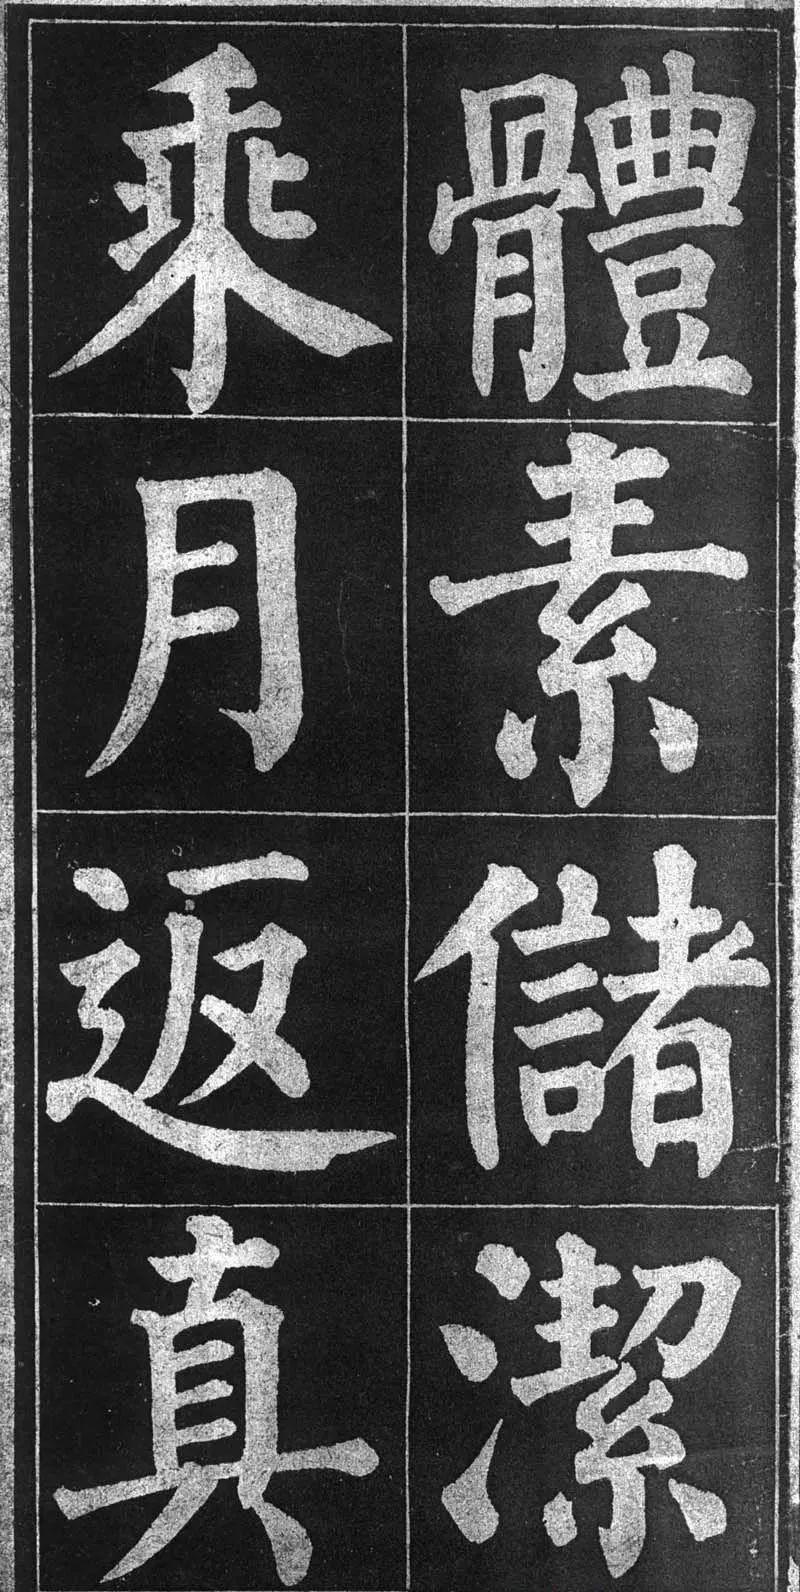 體素儲潔
乘月返真